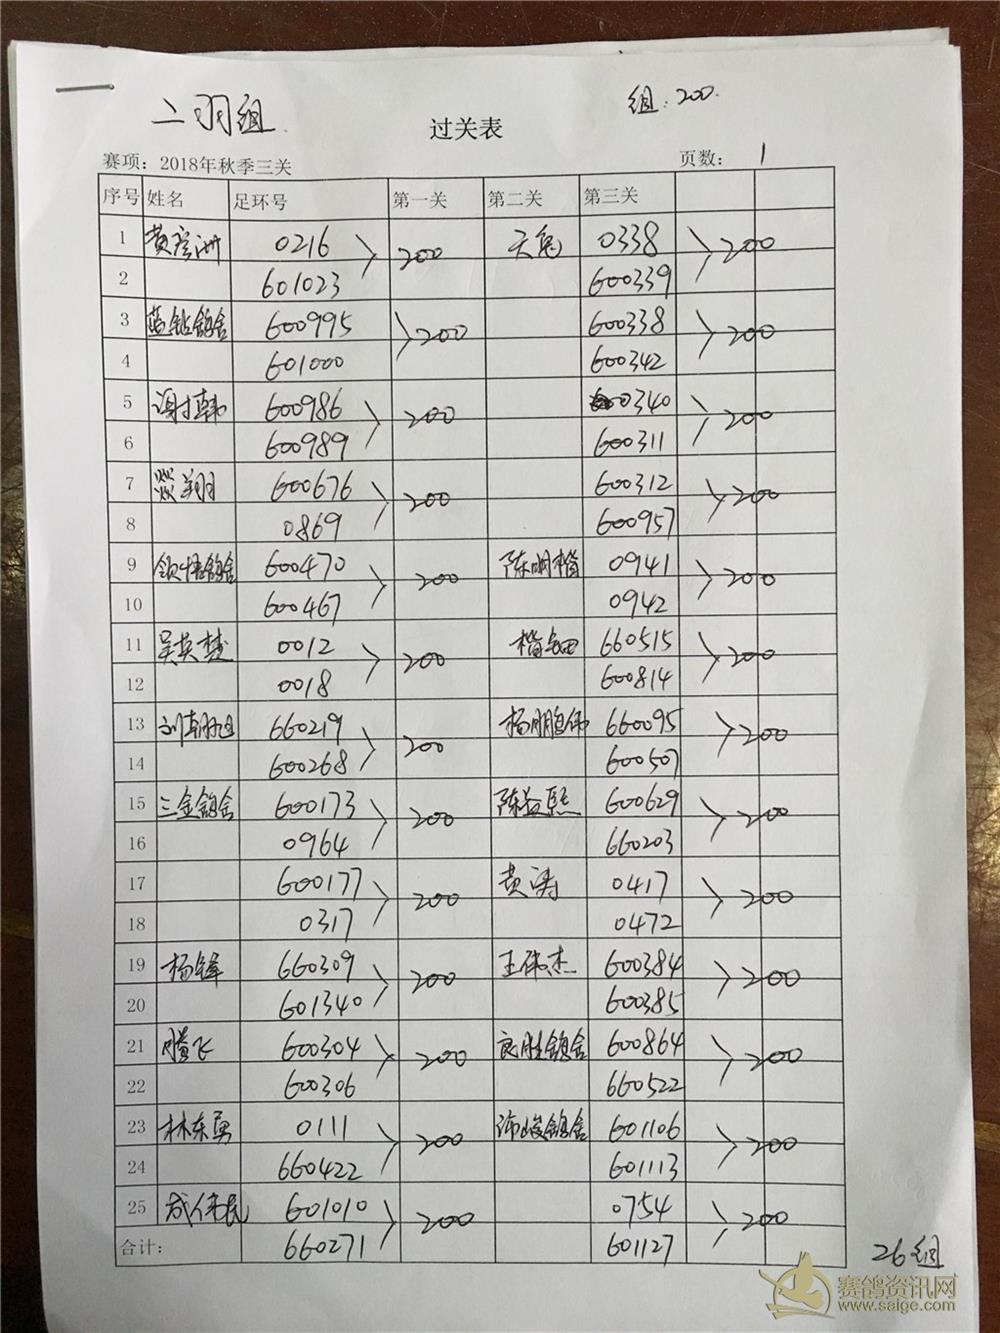 二羽组
组:200
过关表
赛项：2018年秋季三关 页数：1
序号 姓名 足环号 第一关 第二关 第三关
1 黄彦洲 0216 200 天兔 0338 200
2 601023 600339
3 蓝钻鸽舍 600995 200 600338 200
4 601000 600342
5 谢韩 600986 200 00340 200
6 600989 600311
7 翔 600676 200 600312 200
8 0869 600957
9 鸽舍 600470 200 陈明楷 0941 200
10 600467 0942
11 吴英楚 0012 200 660515 200
12 0018 600814
13 刘朝旭 660219 200 杨鹏伟 660095 200
14 600268 600507
15 三金鸽舍 600173 200 陈益熙 600629 200
16 0964 660203
17 600177 200 黄涛 0417 200
18 0317 0472
19 杨锋 660309 200 王伟杰 600384 200
20 601340 600385
21 腾飞 600304 200 良胜鸽舍 600864 200
22 600306 660522
23 林东勇 0111 200 鸽舍 601106 200
24 660422 601113
25 成伟民 601010 200 0754 200
合计： 660271 601127
26组
赛鸽资讯网
www.saige.com